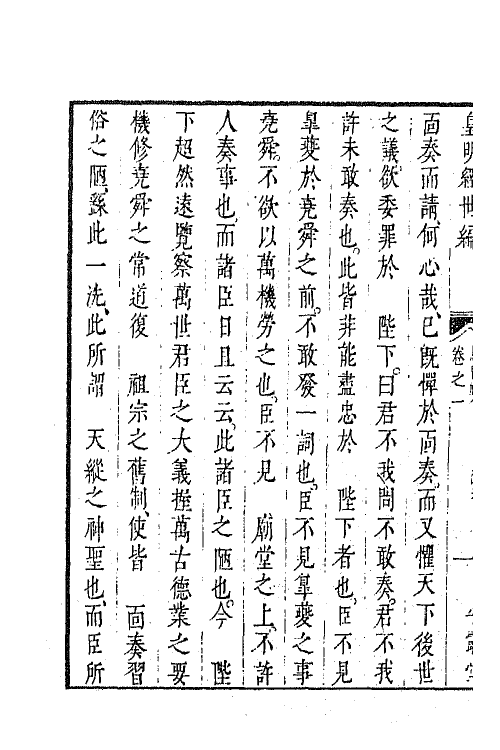 皇明經世編
卷之一
面奏而請何心哉已旣憚於面奏而又懼天下後世
之議欲委罪於 陛下曰君不我問不敢奏君不我
許未敢奏也此皆非能盡忠於 陛下者也臣不見
皐夔於堯舜之前不敢發一詞也臣不見皐夔之事
堯舜不欲以萬機勞之也臣不見 廟堂之上不許
人奏事也而諸臣日且云云此諸臣之陋也今 陛
下超然遠覽察萬世君臣之大義握萬古德業之要
機修堯舜之常道復 祖宗之舊制使皆 面奏習
俗之陋繇此一洗此所謂 天縱之神聖也而臣所